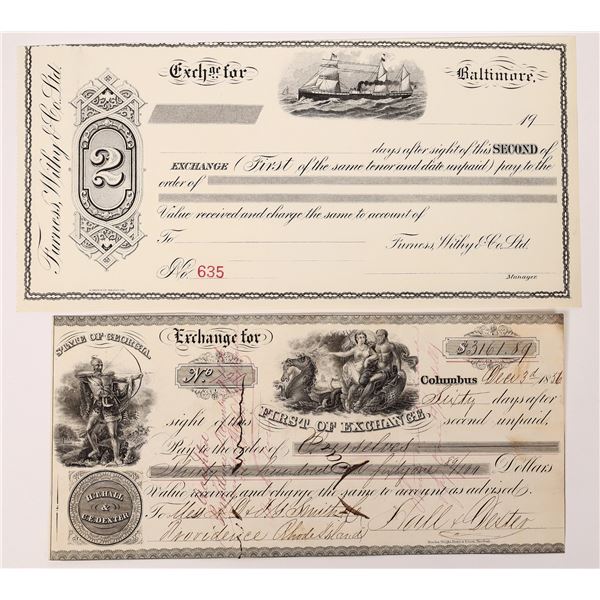 Furness, Withy & Co. Ltd.
2
Exchge for
Baltimore,
19
days after sight of this SECOND of
EXCHANGE (First of the same tenor and date unpaid) pay to the
order of
Value received and charge the same to account of
To
Furness, Withy & Co. Ltd.
No. 635
Manager.
STATE OF GEORGIA
Exchange for
$3161.89
No
Columbus Decr 3d 1856
Sixty days after
sight of this
FIRST OF EXCHANGE,
second unpaid,
Pay to the order of Ourselves
Thirty one hundred & sixty one 89/100 Dollars
Value received and charge the same to account as advised
H.T. HALL
&
C.E. DEXTER
To Messrs
Smith
Hall & Dexter
Providence Rhode Island